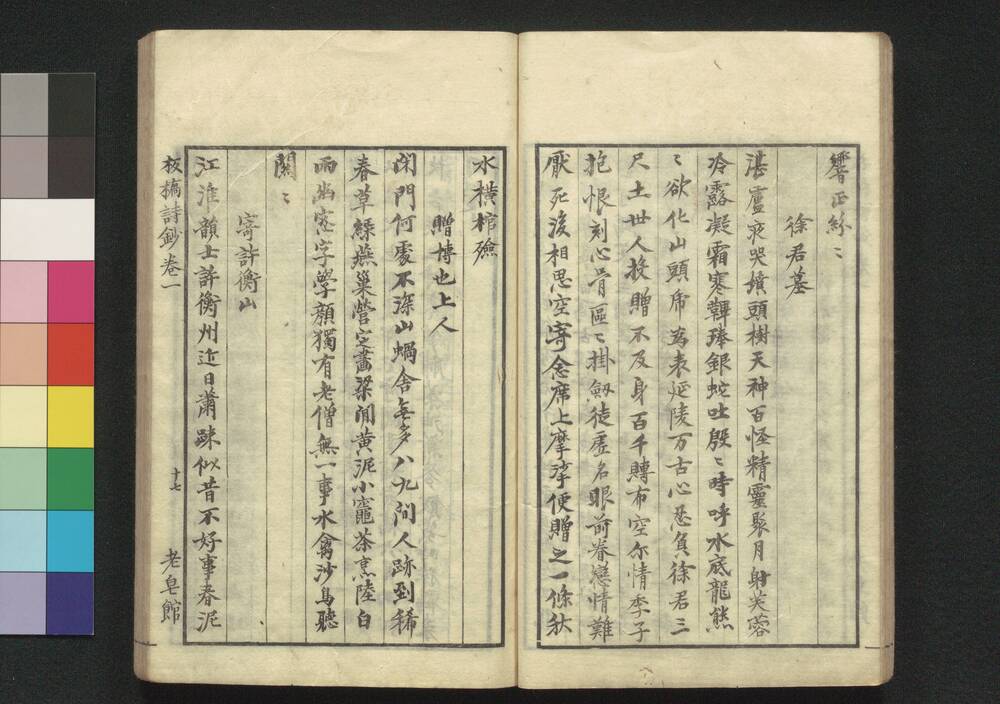 響正紛〻
徐君墓
湛盧夜哭墳頭樹天神百怪精靈聚月射芙蓉
冷露凝霜寒鞞琫銀蛇吐殷〻時呼水底龍熊
〻欲化山頭虎為表延陵万古心恐負徐君三
尺土世人投贈不及身百千賻布空尔情季子
抱恨刻心骨區〻掛劒徒虛名眼前眷戀情難
厭死後相思空寄念席上摩挲便贈之一條秋
水橫棺殮
贈博也上人
閉門何處不深山蝸舍無多八九间人跡到稀
春草綠燕巢營定畫梁閒黄泥小竈茶烹陸白
雨幽窓字學顏獨有老僧無一事水禽沙鳥聽
關〻
寄許衡山
江淮韻士許衡州近日蕭踈似昔不好事春泥
板橋詩鈔卷一
十七
老皂館